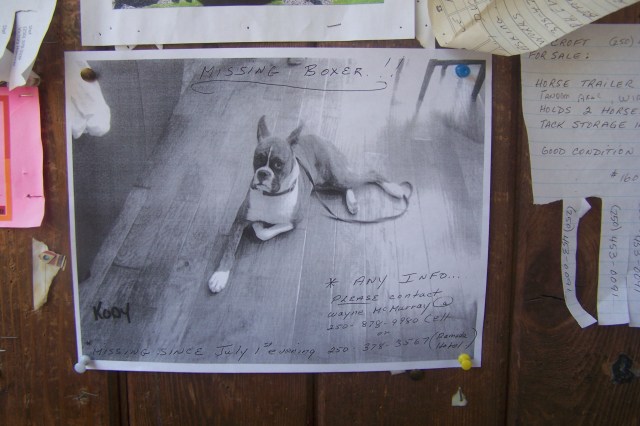 MISSING BOXER!!
* ANY INFO...
PLEASE contact
Wayne McMurray @
250-378-9980 Cell
or
250 378-3567 (Remote Hotel)
KODY
*MISSING SINCE July 1st evening
CROFT (250)
FOR SALE:
HORSE TRAILER
HOLDS 2 HORSE
TACK STORAGE
GOOD CONDITION
$160